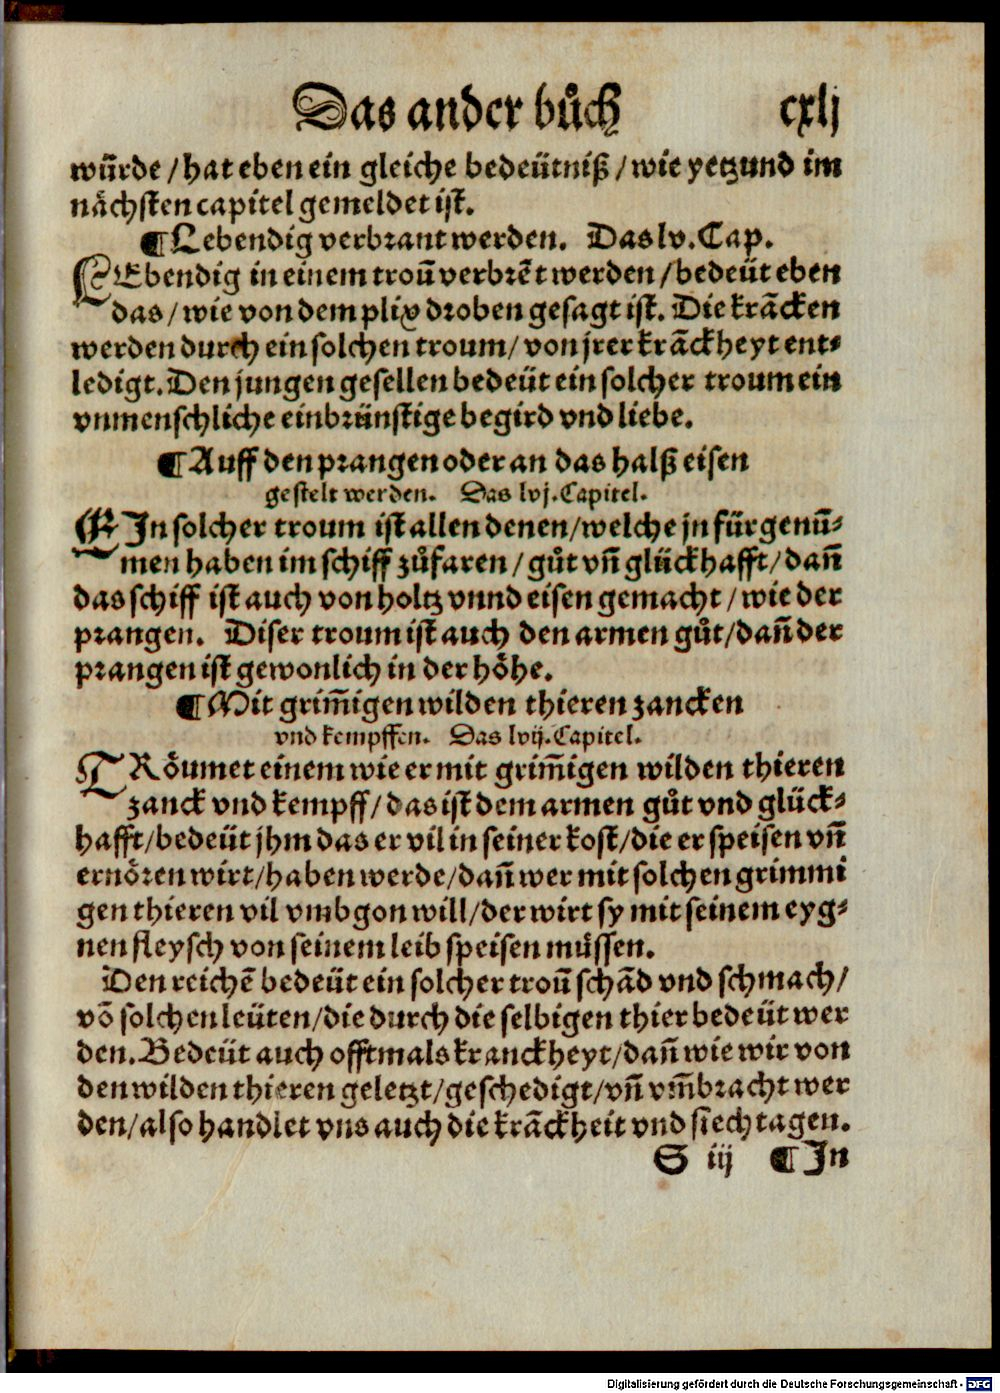 Das ander bůch cxlj
wu̅rde / hat eben ein gleiche bedeütniß / wie yetzund im
nächsten capitel gemeldet ist.
¶Lebendig verbrant werden. Das lv. Cap.
LEbendig in einem trou̅ verbre̅t werden / bedeüt eben
das / wie von dem plix droben gesagt ist. Die kra̅cken
werden durch ein solchen troum / von jrer kra̅ckheyt ent⸗
ledigt. Den jungen gesellen bedeüt ein solcher troum ein
vnmenschliche einbrünstige begird vnd liebe.
¶Auff den prangen oder an das halß eisen
gestelt werden. Das lvj. Capitel.
EIn solcher troum ist allen denen / welche jn fürgenu̅⸗
men haben im schiff zůfaren / gůt vn̅ glückhafft / dan̅
das schiff ist auch von holtz vnnd eisen gemacht / wie der
prangen. Diser troum ist auch den armen gůt / dan̅ der
prangen ist gewonlich in der höhe.
¶Mit grim̅igen wilden thieren zancken
vnd kempffen. Das lvij. Capitel.
TRöumet einem wie er mit grim̅igen wilden thieren
zanck vnd kempff / das ist dem armen gůt vnd glück⸗
hafft / bedeüt jhm das er vil in seiner kost / die er speisen vn̅
ernören wirt / haben werde / dan̅ wer mit solchen grimmi
gen thieren vil vmbgon will / der wirt sy mit seinem eyg⸗
nen fleysch von seinem leib speisen müssen.
Den reiche̅ bedeüt ein solcher trou̅ scha̅d vnd schmach /
vo̅ solchen leüten / die durch die selbigen thier bedeüt wer
den. Bedeüt auch offtmals kranckheyt / dan̅ wie wir von
den wilden thieren geletzt / geschedigt / vn̅ vm̅bracht wer
den / also handlet vns auch die kra̅ckheit vnd siechtagen.
S iij ¶In
Digitalisierung gefördert durch die Deutsche Forschungsgemeinschaft - DFG